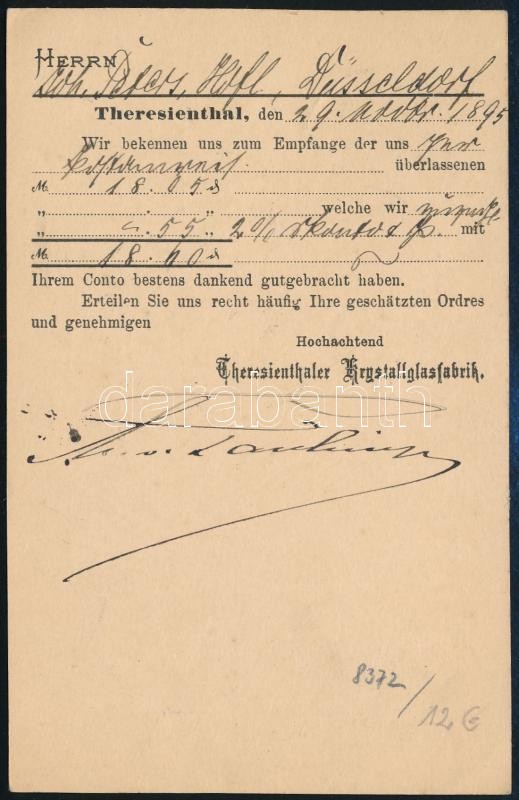 HERRN
Joh. Peters, Hofl., Düsseldorf
Theresienthal, den 29. Novbr. 1895
Wir bekennen uns zum Empfange der uns per
Postanweis. überlassenen
M. 18.05 ₰
„ . „ welche wir
„ –.55 „ 2% Skonto & P. mit
M. 18.60 ₰
Ihrem Conto bestens dankend gutgebracht haben.
Erteilen Sie uns recht häufig Ihre geschätzten Ordres
und genehmigen
Hochachtend
Theresienthaler Krystallglasfabrik.
darabanth
8372/
12 €